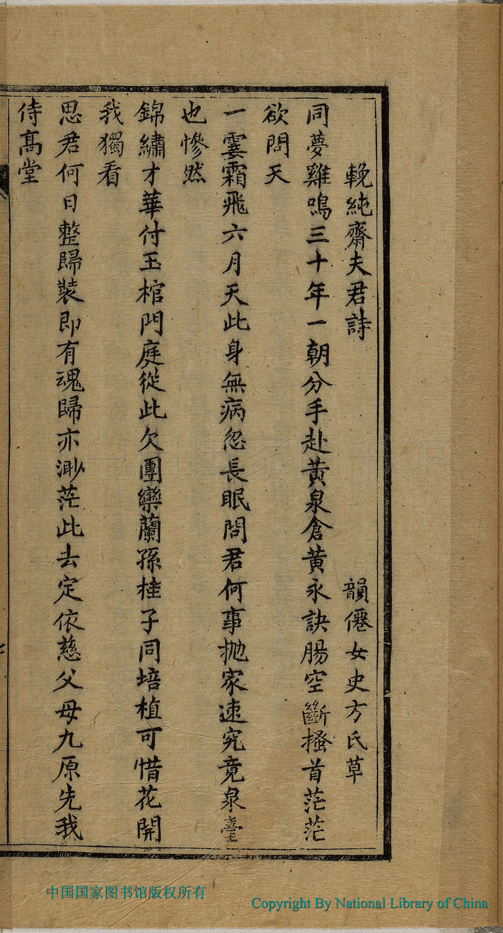 輓純齋夫君詩
韻僊女史方氏草
同夢雞鳴三十年一朝分手赴黃泉倉黃永訣腸空斷搔首茫茫
欲問天
一霎霜飛六月天此身無病忽長眠問君何事抛家速究竟泉臺
也慘然
錦繡才華付玉棺門庭從此欠團欒蘭孫桂子同培植可惜花開
我獨看
思君何日整歸裝即有魂歸亦渺茫此去定依慈父母九原先我
侍高堂
中国国家图书馆版权所有
Copyright By National Library of China